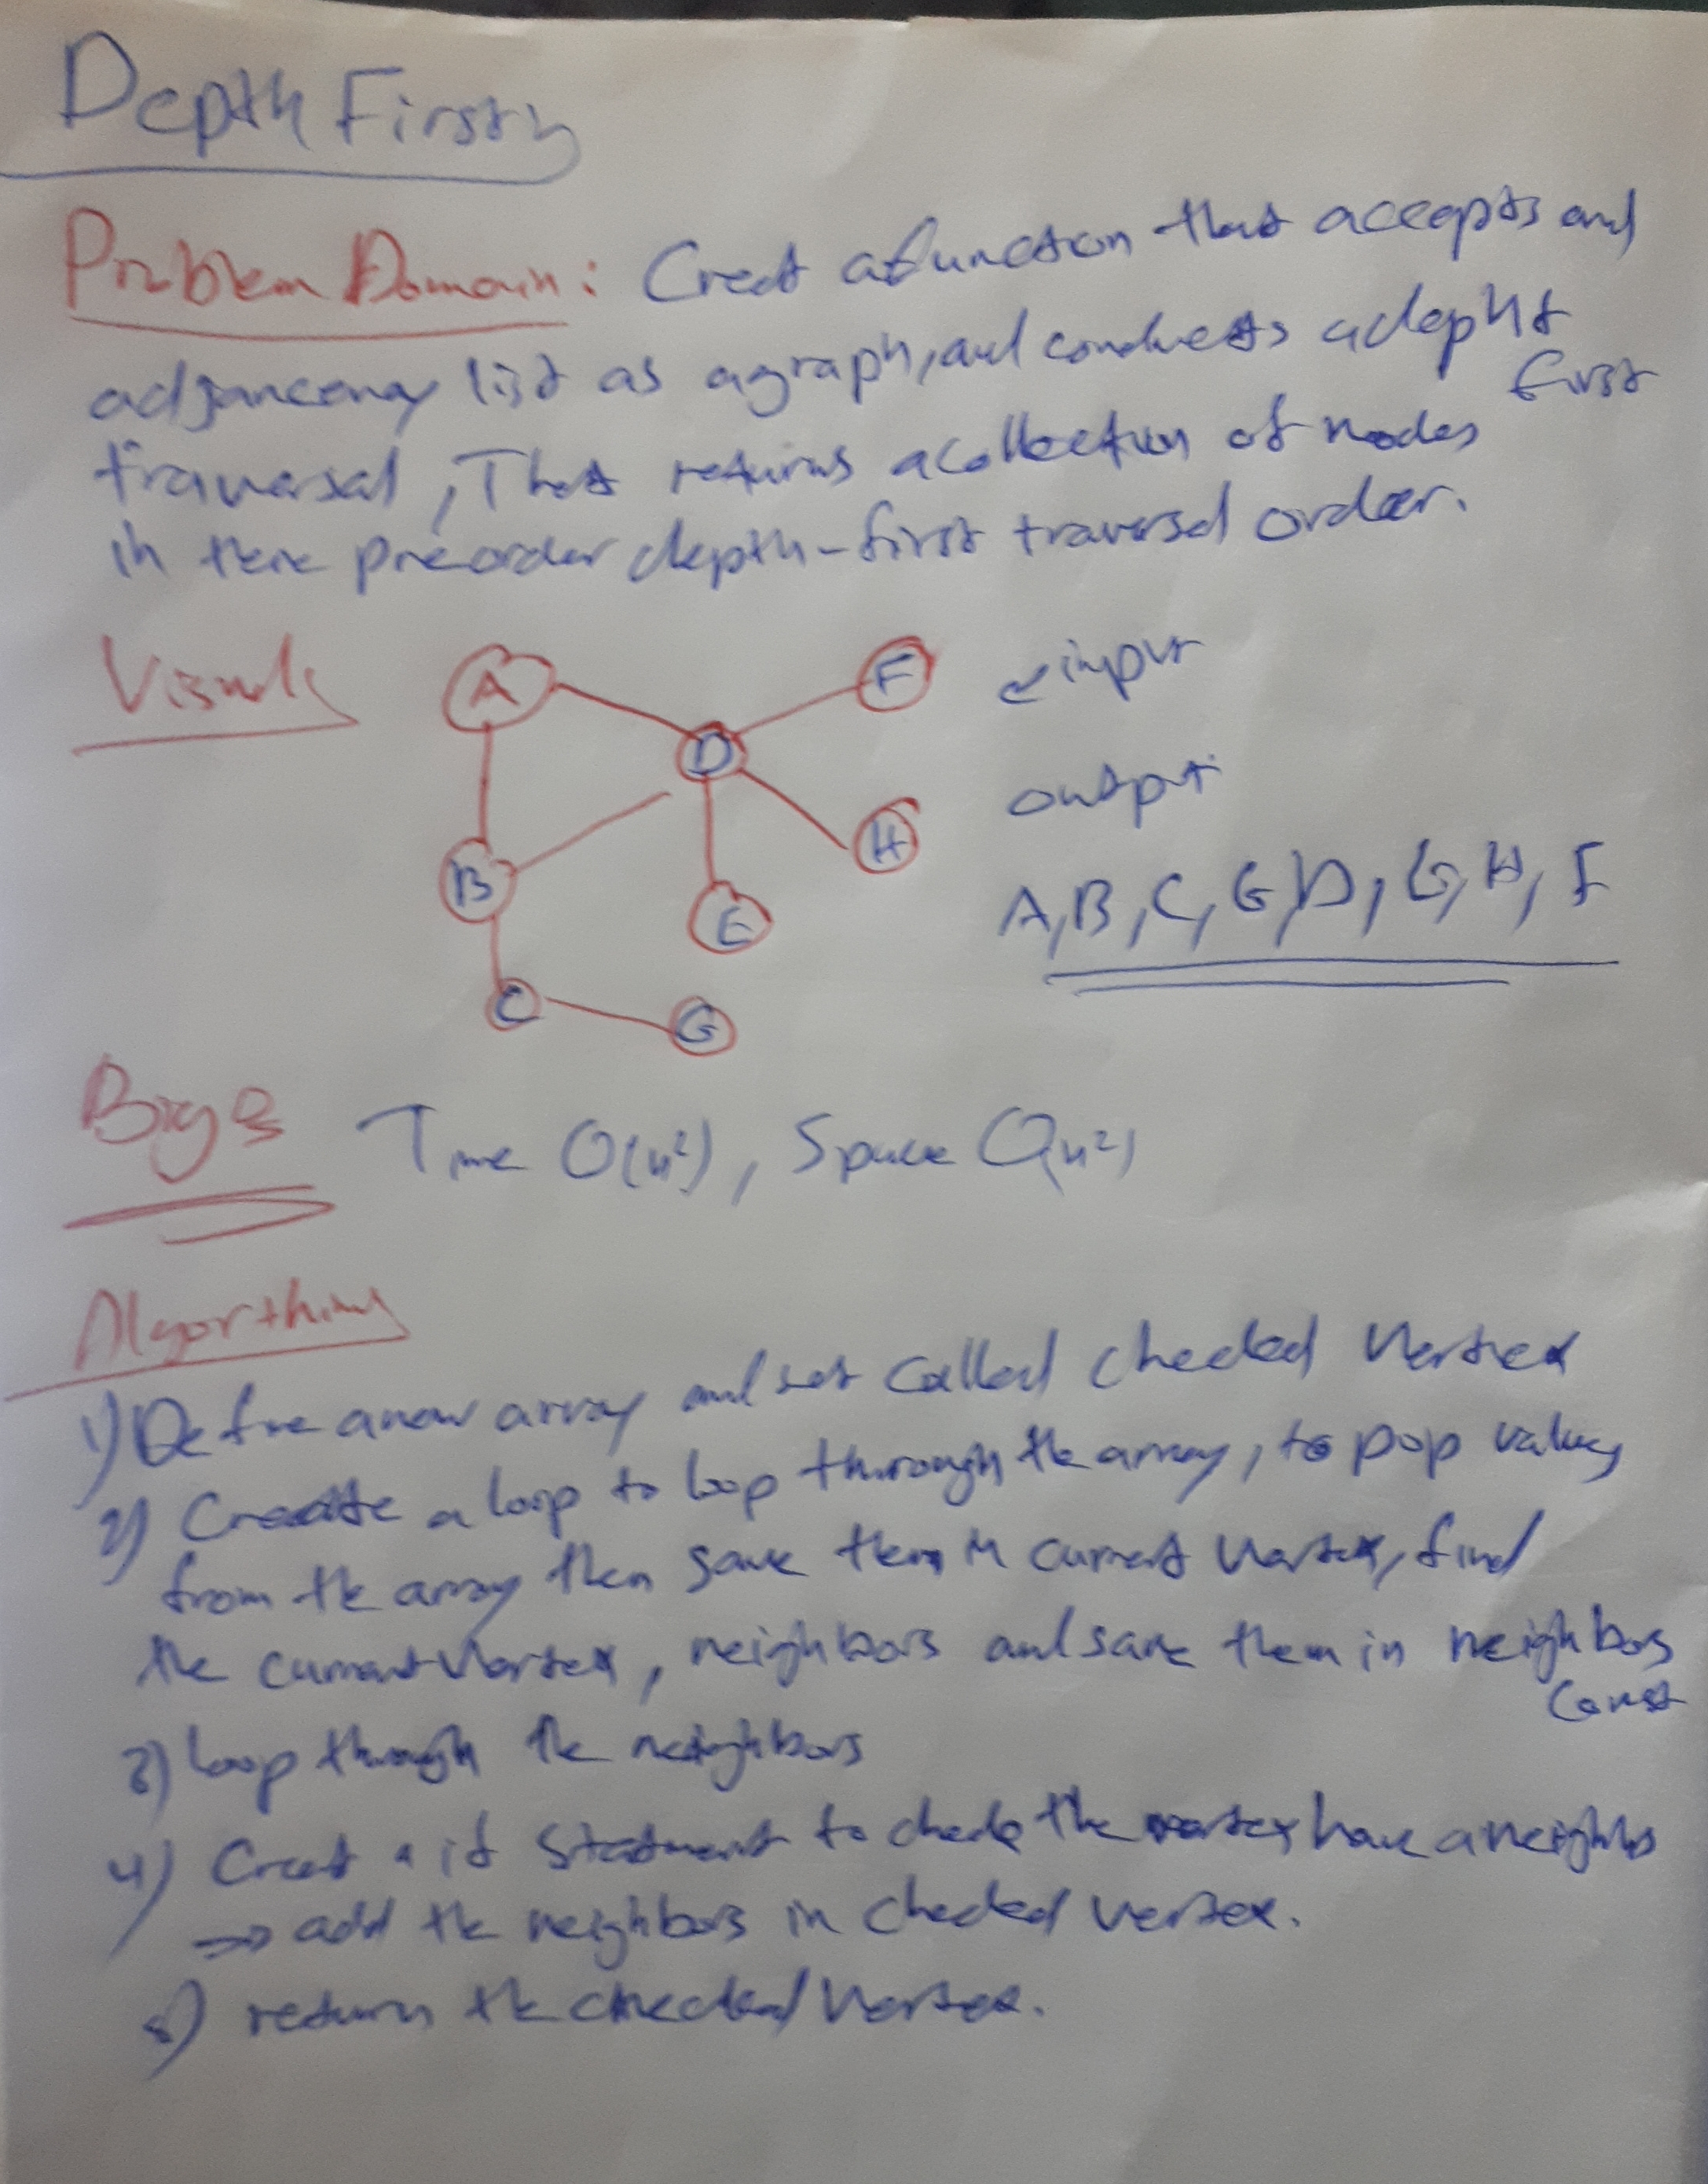 Depth First
Problem Domain: Creat a function that accepts and
adjancency list as a graph, and conducts a depht
first
traversal, That returns a collection of nodes
in there preorder depth-first traversal order.
Visuals
A
F
input
D
output
H
B
E
A, B, C, G, D, G, H, F
C
G
Big O
Time O(n²), Space O(n²)
Algorthim
1) Define a new array and set called checked Vertex
2) Create a loop to loop through the array, to pop values
from the array then save them in current Vertex, find
the current Vertex, neighbors and save them in neighbors
Const
3) loop through the neighbors
4) Creat a if Statment to check the vertex have a neighbs
→ add the neighbors in checked vertex.
5) return the checked Vertex.